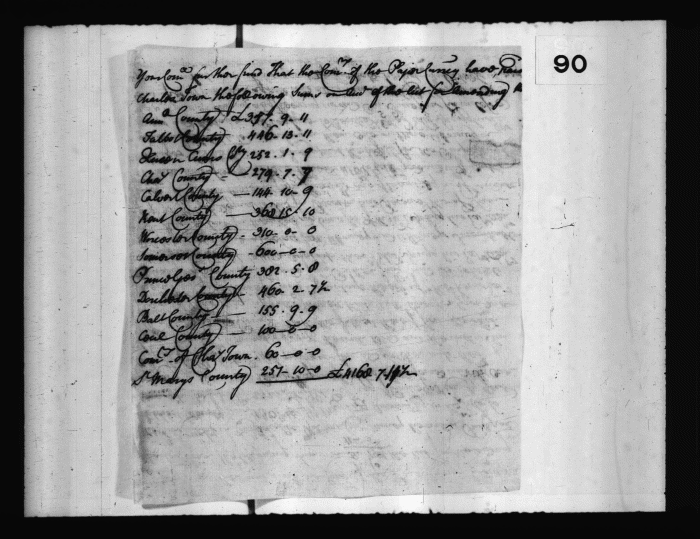 90
Your Com.ee further find That the Com.rs of the Paper Curr.cy have
Charles Town the following Sums on of the Act for Amending
Ann.l County £357 - 9 - 11
Talbot County 446 - 13 - 11
Queen Anns C.ty 252 - 1 - 9
Cha.s County - 279 - 7 - 7
Calvert County - 144 - 10 - 9
Kent County - 368 15 - 10
Worcester County - 310 - 0 - 0
Somerset County - 600 - 0 - 0
Prince Geo.s County 382 - 5 - 8
Dorchester County - 460 - 2 - 7½
Balt County - 155 - 9 - 9
Cecil County - 100 - 0 - 0
Com.rs of Cha.s Town . 60 - 0 - 0
S.t Marys County 257 - 10 - 0 £4168 7